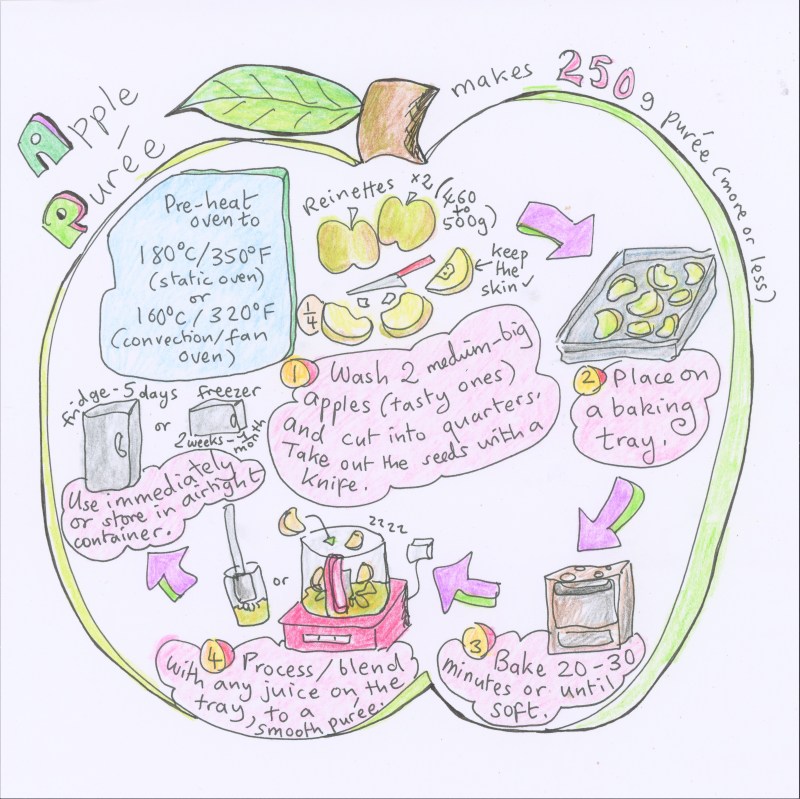 Apple
Purée
makes 250g purée (more or less)
Pre-heat
oven to
180°C/350°F
(static oven)
or
160°C/320°F
(convection/fan
oven)
Reinettes x2 (460
to
500g)
keep
the
skin
1/4
1 Wash 2 medium-big
apples (tasty ones)
and cut into quarters.
Take out the seeds with a
knife.
2 Place on
a baking
tray.
3 Bake 20-30
minutes or until
soft.
zzzz
or
4 Process/blend
with any juice on the
tray, to a
smooth purée.
fridge-5 days
or
freezer
2 weeks-1
month
Use immediately
or store in airtight
container.